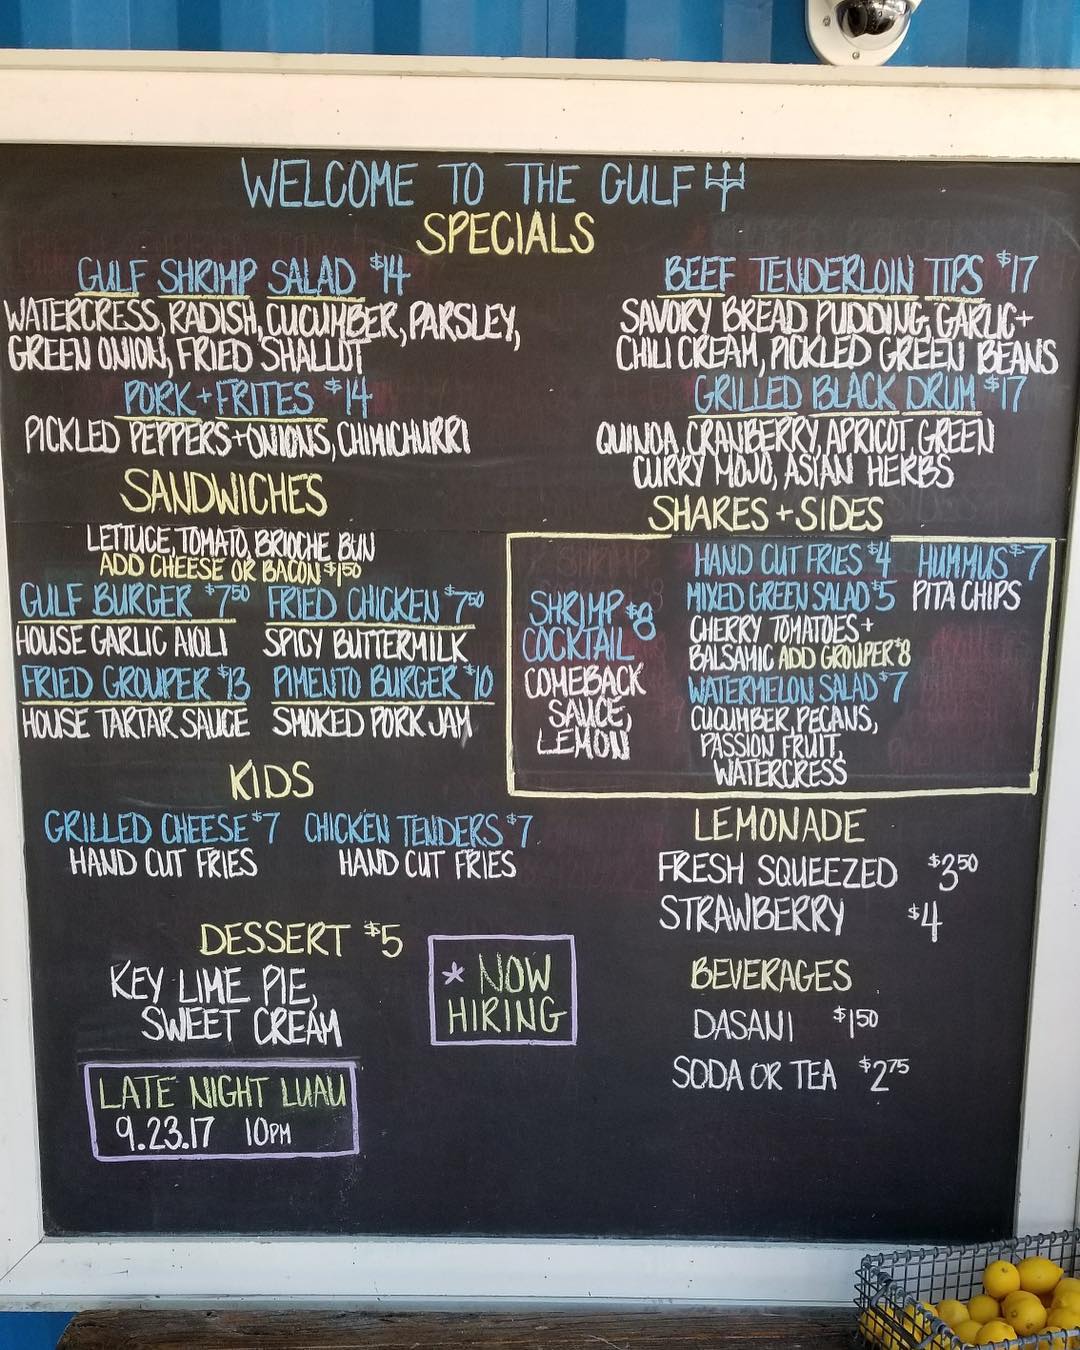 WELCOME TO THE GULF
SPECIALS
GULF SHRIMP SALAD $14
WATERCRESS, RADISH, CUCUMBER, PARSLEY,
GREEN ONION, FRIED SHALLOT
PORK + FRITES $14
PICKLED PEPPERS + ONIONS, CHIMICHURRI
BEEF TENDERLOIN TIPS $17
SAVORY BREAD PUDDING, GARLIC +
CHILI CREAM, PICKLED GREEN BEANS
GRILLED BLACK DRUM $17
QUINOA, CRANBERRY, APRICOT, GREEN
CURRY MOJO, ASIAN HERBS
SANDWICHES
LETTUCE, TOMATO, BRIOCHE BUN
ADD CHEESE OR BACON $1.50
GULF BURGER $7.50
HOUSE GARLIC AIOLI
FRIED CHICKEN $7.50
SPICY BUTTERMILK
FRIED GROUPER $13
HOUSE TARTAR SAUCE
PIMENTO BURGER $10
SMOKED PORK JAM
SHARES + SIDES
SHRIMP $8
COCKTAIL
COMEBACK
SAUCE,
LEMON
HAND CUT FRIES $4
MIXED GREEN SALAD $5
CHERRY TOMATOES +
BALSAMIC ADD GROUPER $8
WATERMELON SALAD $7
CUCUMBER, PECANS,
PASSION FRUIT,
WATERCRESS
HUMMUS $7
PITA CHIPS
KIDS
GRILLED CHEESE $7
HAND CUT FRIES
CHICKEN TENDERS $7
HAND CUT FRIES
LEMONADE
FRESH SQUEEZED $3.50
STRAWBERRY $4
DESSERT $5
KEY LIME PIE,
SWEET CREAM
* NOW
HIRING
BEVERAGES
DASANI $1.50
SODA OR TEA $2.75
LATE NIGHT LUAU
9.23.17 10PM